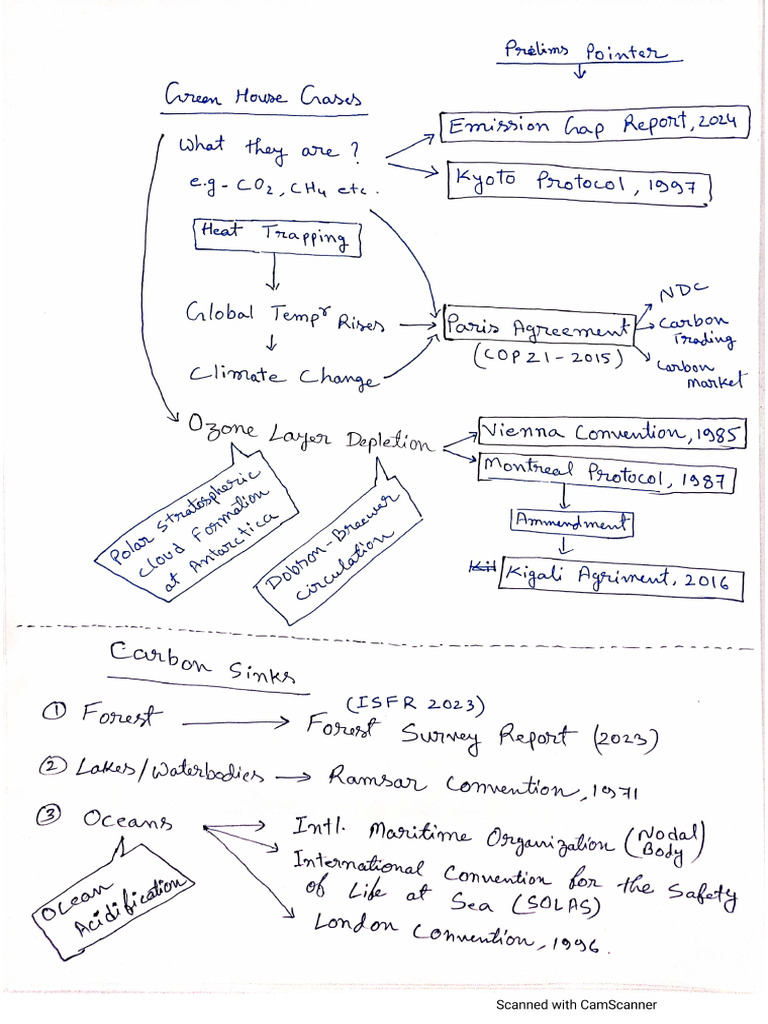 Prelims Pointer
Green House Gases
What they are?
e.g - CO2, CH4 etc.
Emission Gap Report, 2024
Kyoto Protocol, 1997
Heat Trapping
Global Tempr Rises
Climate Change
Paris Agreement
(COP21-2015)
NDC
Carbon
Trading
Carbon
market
Ozone Layer Depletion
Vienna Convention, 1985
Montreal Protocol, 1987
Ammendment
Kil Kigali Agriment, 2016
Polar Stratospheric
cloud Formation
at Antarctica
Dobson-Breewer
circulation
Carbon Sinks
① Forest
(ISFR 2023)
Forest Survey Report (2023)
② Lakes/Waterbodies → Ramsar Convention, 1971
③ Oceans
Intl. Maritime Organization (Nodal
Body)
International Convention for the Safety
of Life at Sea (SOLAS)
London Convention, 1996.
Ocean
Acidification
Scanned with CamScanner